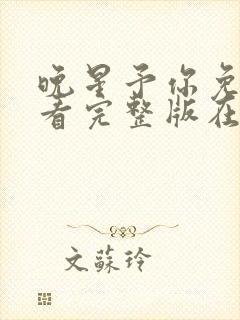 晚星予你免
看完整版在
文蘇玲